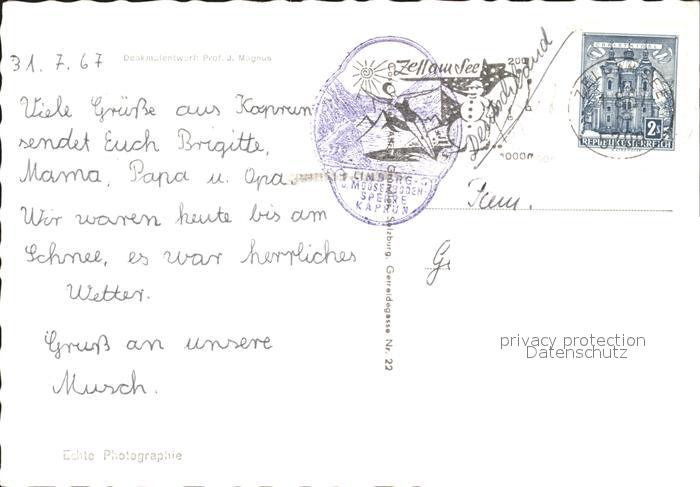 31. 7. 67
Denkmalentwurf: Prof. J. Magnus
Viele Grüße aus Kaprun
sendet Euch Brigitte,
Mama, Papa u. Opa.
Wir waren heute bis am
Schnee, es war herrliches
Wetter.
Gruß an unsere
Musch.
Echte Photographie
Zell am See
LIMBERG-
U. MOOSERBODEN-
SPERRE
KAPRUN
Salzburg, Gerreidegasse Nr. 22
Deutschland
2S
REPUBLIK ÖSTERREICH
Fam.
G
privacy protection
Datenschutz